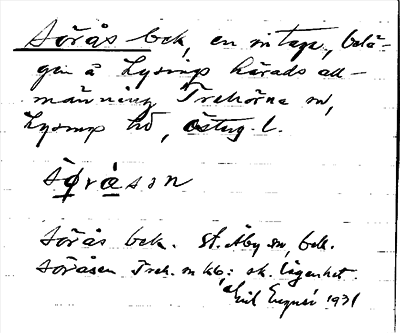 Sörås bek, en intage, belä-
gen å Lysings härads all-
männing Trehörna sn,
Lysings hd, Österg. l.
sǫ̀ràsən
Sörås bek. St. Åby sn, bek.
Söråsen Treh. sn kb: sk. lägenhet.
Emil 1931